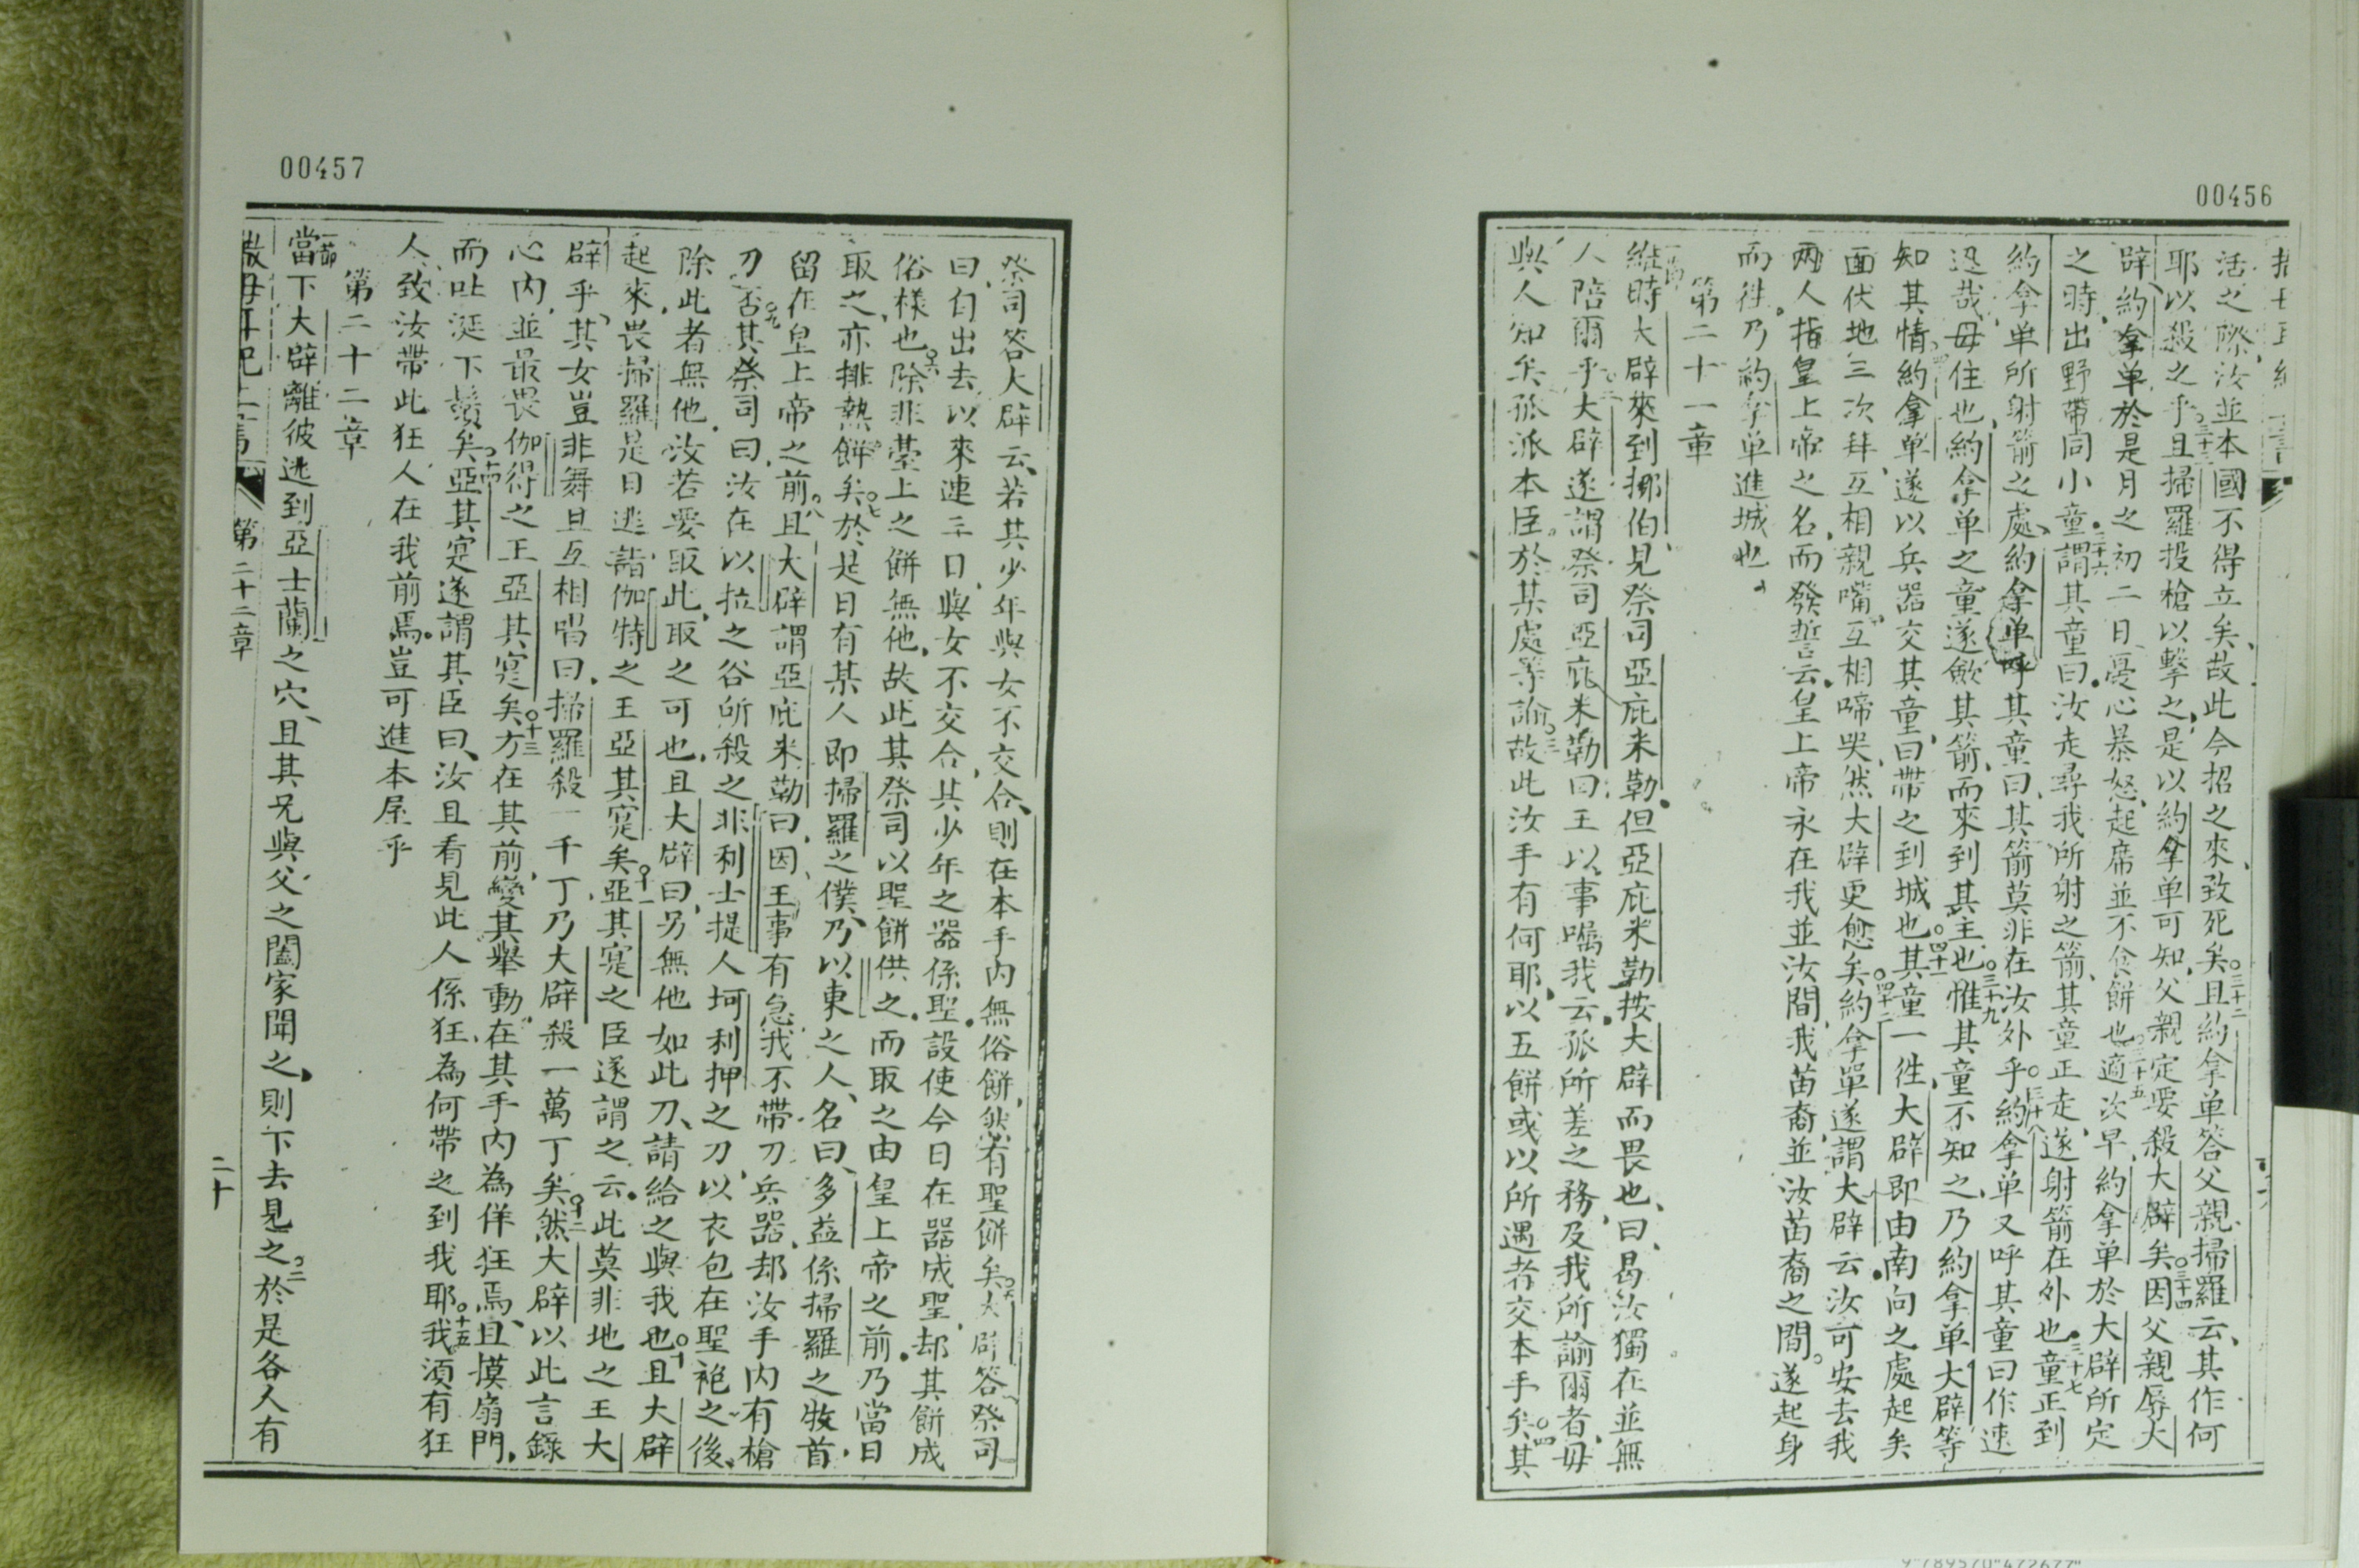 00456
活之際汝並本國不得立矣、故此今招之來、致死矣。○三十二且約拿单答父親掃羅云、其作何
耶、以殺之乎。○三十三且掃羅投槍以擊之、是以約拿单可知、父親定要殺大辟矣。○三十四因父親辱大
辟、約拿单於是月之初二日憂心暴怒、起席並不食餅也。○三十五適次早、約拿单於大辟所定
之時、出野帶同小童。三十六謂其童曰、汝走尋我所射之箭、其童正走、遂射箭在外也。三十七童正到
約拿单所射箭之處、約拿单呼其童曰、其箭莫非在汝外乎。○三十八約拿单又呼其童曰、作速
迅哉、毋住也、約拿单之童遂斂其箭、而來到其主也。○三十九惟其童不知之、乃約拿单大辟等
知其情。約拿单遂以兵器交其童、曰、帶之到城也。○四十一其童一徃、大辟即由南向之處起矣
面伏地三次拜、互相親嘴、互相啼哭、然大辟更愈矣。○四十二約拿單遂謂大辟云、汝可安去、我
兩人指皇上帝之名、而發誓云、皇上帝永在我並汝間、我苗裔並汝苗裔之間。遂起身
而徃、乃約拿单進城也。
第二十一章
維時大辟來到挪伯、見祭司亞庇米勒。但亞庇米勒按大辟而畏也、曰、曷汝獨在並無
人陪爾乎。○二大辟遂謂祭司亞庇米勒曰、王以事囑我云、孤所差之務、及我所諭爾者、毋
與人知矣、孤派本臣於某處等諭。○三故此汝手有何耶、以五餅或以所遇者交本手矣。○四其
00457
祭司答大辟云、若其少年與女不交合、則在本手內無俗餅、然有聖餅矣。○五大辟答祭司
曰、自出去以來連三日、與女不交合、其少年之器係聖。設使今日在器成聖、却其餅成
俗樣也。○六除非臺上之餅無他、故此其祭司以聖餅供之。而取之由皇上帝之前。乃當日
取之、亦排熱餅矣。○七於是日有某人即掃羅之僕、乃以東之人、名曰、多益係掃羅之牧首、
留在皇上帝之前。○八且大辟謂亞庇米勒曰、因王事有急、我不帶刀兵器、却汝手內有槍
刀否。○九其祭司曰、汝在以拉之谷所殺之非利士提人坷利押之刀、以衣包在聖袍之後、
除此者無他。汝若要取此、取之可也、且大辟曰、另無他如此刀、請給之與我也。○十且大辟
起來、畏掃羅、是日逃詣伽特之王亞其寔矣。○十一亞其寔之臣遂謂之云、此莫非地之王大
辟乎、其女豈非舞且互相唱曰、掃羅殺一千丁、乃大辟殺一萬丁矣。○十二然大辟以此言錄
心內、並最畏伽得之王亞其寔矣。○十三方在其前、變其舉動、在其手內為佯狂焉、且摸扇門、
而吐涎下鬚矣。○十四亞其寔遂謂其臣曰、汝且看見此人係狂、為何帶之到我耶。○十五我須有狂
人、致汝帶此狂人在我前焉。豈可進本屋乎
第二十二章
一節當下大辟離彼逃到亞士蘭之穴、且其兄與父之闔家聞之、則下去見之。○二於是各人有
第二十二章
二十